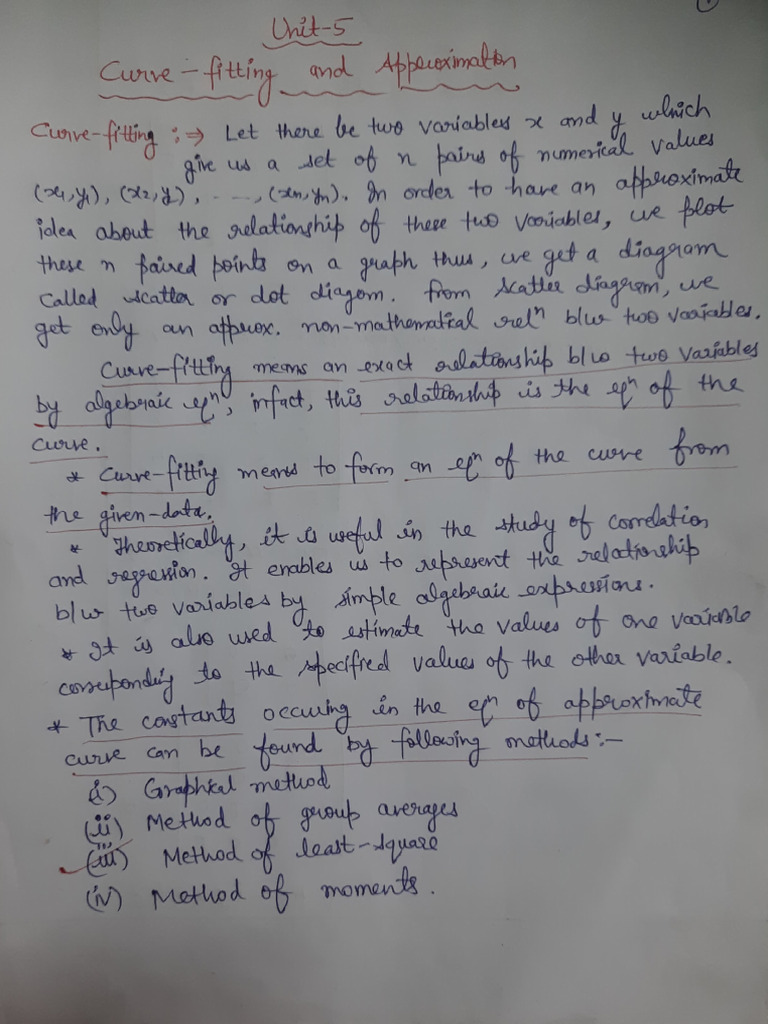 Unit-5
Curve-fitting and Approximation
Curve-fitting :⇒ Let there be two variables x and y which
give us a set of n pairs of numerical values
(x₁,y₁), (x₂,y₂), - ---, (xn,yn). In order to have an approximate
idea about the relationship of these two variables, we plot
these n paired points on a graph thus, we get a diagram
called scatter or dot diagom. From scatter diagram, we
get only an approx. non-mathematical relⁿ b/w two variables.
Curve-fitting means an exact relationship b/w two variables
by algebraic eqⁿ, infact, this relationship is the eqⁿ of the
curve.
* Curve-fitting means to form an eqⁿ of the curve from
the given-data.
* Theoretically, it is useful in the study of correlation
and regression. It enables us to represent the relationship
b/w two variables by simple algebraic expressions.
* It is also used to estimate the values of one variable
corresponding to the specified values of the other variable.
* The constants occuring in the eqⁿ of approximate
curve can be found by following methods:-
(i) Graphical method
(ii) Method of group averages
(iii) Method of least-square
(iv) Method of moments.